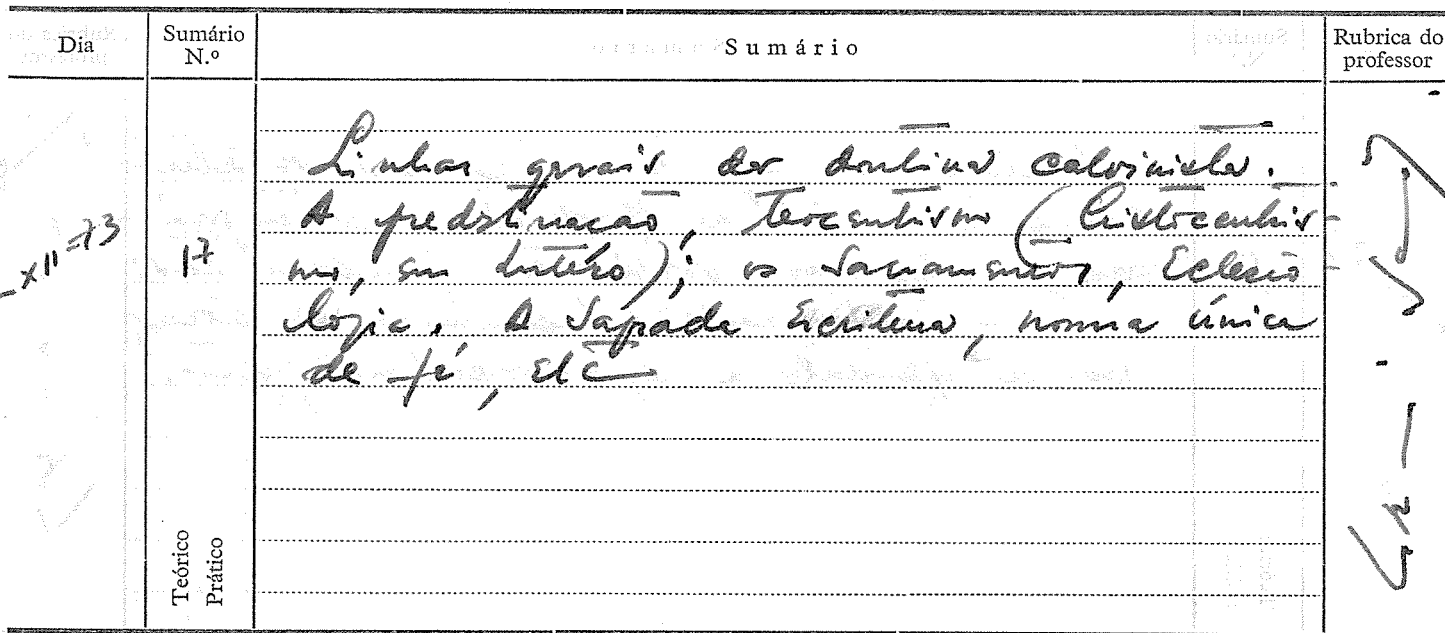 Dia
Sumário N.º
Sumário
Rubrica do professor
XII-73
17
Linhas gerais da doutina calvinista.
A predstinação, teocentismo (Cristocentris-
mo, em Lutero); os Sacramentos, Eclesio
lógia. A Sagrada Escritura, norma única
de fé, etc
Teórico
Prático